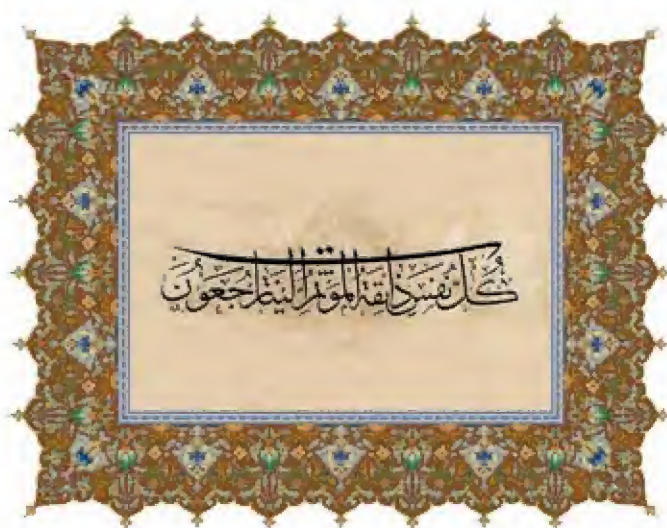 كل نفس ذائقة الموت ثم الينا ترجعون